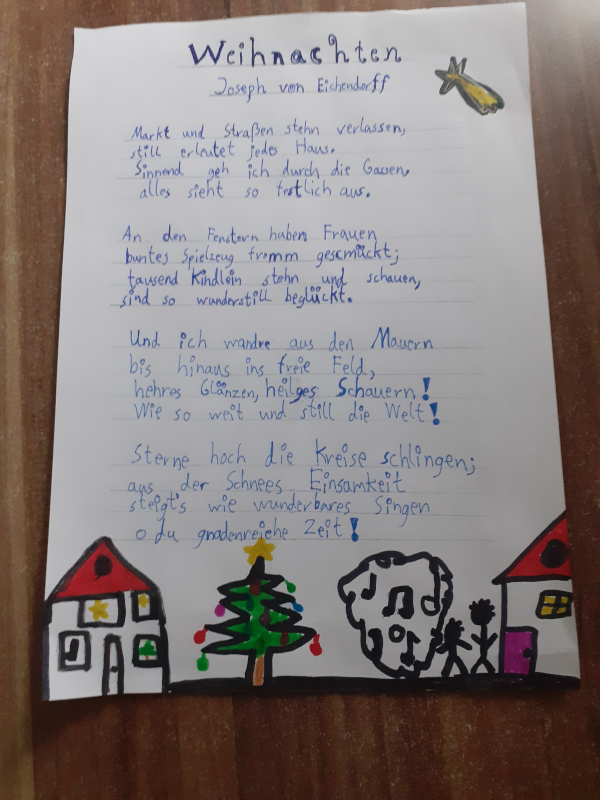 Weihnachten
Joseph von Eichendorff
Markt und Straßen stehn verlassen,
still erleutet jedes Haus.
Sinnend geh ich durch die Gassen,
alles sieht so festlich aus.
An den Fenstern haben Frauen
buntes Spielzeug fromm gescmückt;
tausend Kindlein stehn und schauen,
sind so wunderstill beglückt.
Und ich wandre aus den Mauern
bis hinaus ins freie Feld,
hehres Glänzen, heilges Schauern!
Wie so weit und still die Welt!
Sterne hoch die Kreise schlingen;
aus der Schnees Einsamkeit
steigt's wie wunderbares Singen
o du gnadenreiche Zeit!